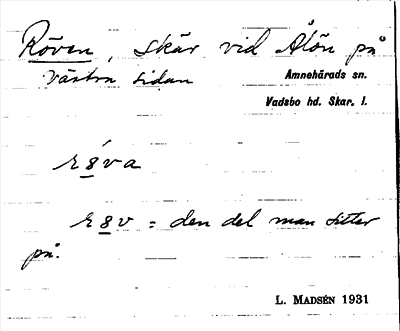 Röven, skär vid Ålön på
västra sidan
Amnehärads sn.
Vadsbo hd. Skar. l.
r8́va
r8v = den del man sitter
på.
L. MADSÉN 1931